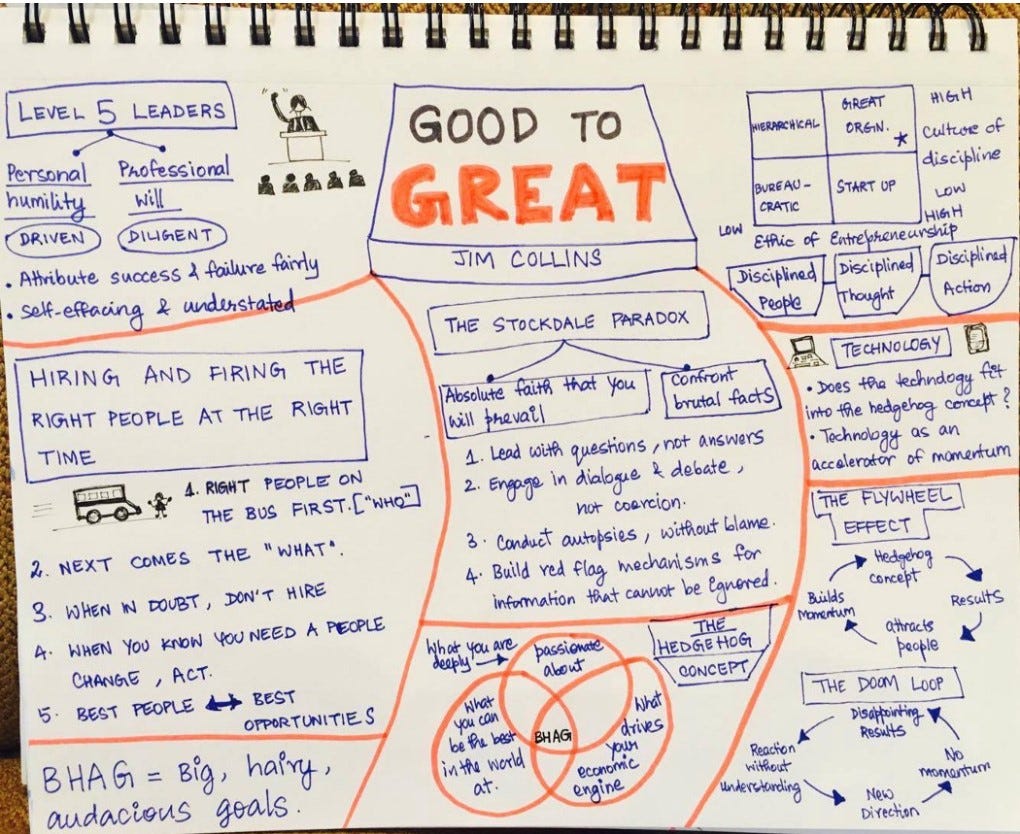 LEVEL 5 LEADERS
Personal humility
Professional Will
DRIVEN
DILIGENT
• Attribute success & failure fairly
• Self-effacing & understated
GOOD TO
GREAT
JIM COLLINS
HIERARCHICAL
GREAT ORGIN. *
BUREAU-
CRATIC
START UP
HIGH
Culture of
discipline
LOW
LOW
HIGH
Ethic of Entrepreneurship
Disciplined People
Disciplined Thought
Disciplined Action
HIRING AND FIRING THE
RIGHT PEOPLE AT THE RIGHT
TIME
1. RIGHT PEOPLE ON
THE BUS FIRST. ["WHO"]
2. NEXT COMES THE "WHAT".
3. WHEN IN DOUBT, DON'T HIRE
4. WHEN YOU KNOW YOU NEED A PEOPLE
CHANGE, ACT.
5. BEST PEOPLE ↔ BEST
OPPORTUNITIES
BHAG = Big, hairy,
audacious goals.
THE STOCKDALE PARADOX
Absolute faith that you
will prevail
Confront
brutal facts
1. Lead with questions, not answers
2. Engage in dialogue & debate,
not coercion.
3. Conduct autopsies, without blame.
4. Build red flag mechanisms for
information that cannot be ignored.
THE
HEDGEHOG
CONCEPT
What you are
deeply →
passionate
about
What
you can
be the best
in the world
at.
BHAG
What
drives
your
economic
engine
TECHNOLOGY
• Does the technology fit
into the hedgehog concept?
• Technology as an
accelerator of momentum
THE FLYWHEEL
EFFECT
Hedgehog
concept
Results
attracts
people
Builds
Momentum
THE DOOM LOOP
Disappointing
Results
Reaction
without
understanding
New
Direction
No
momentum